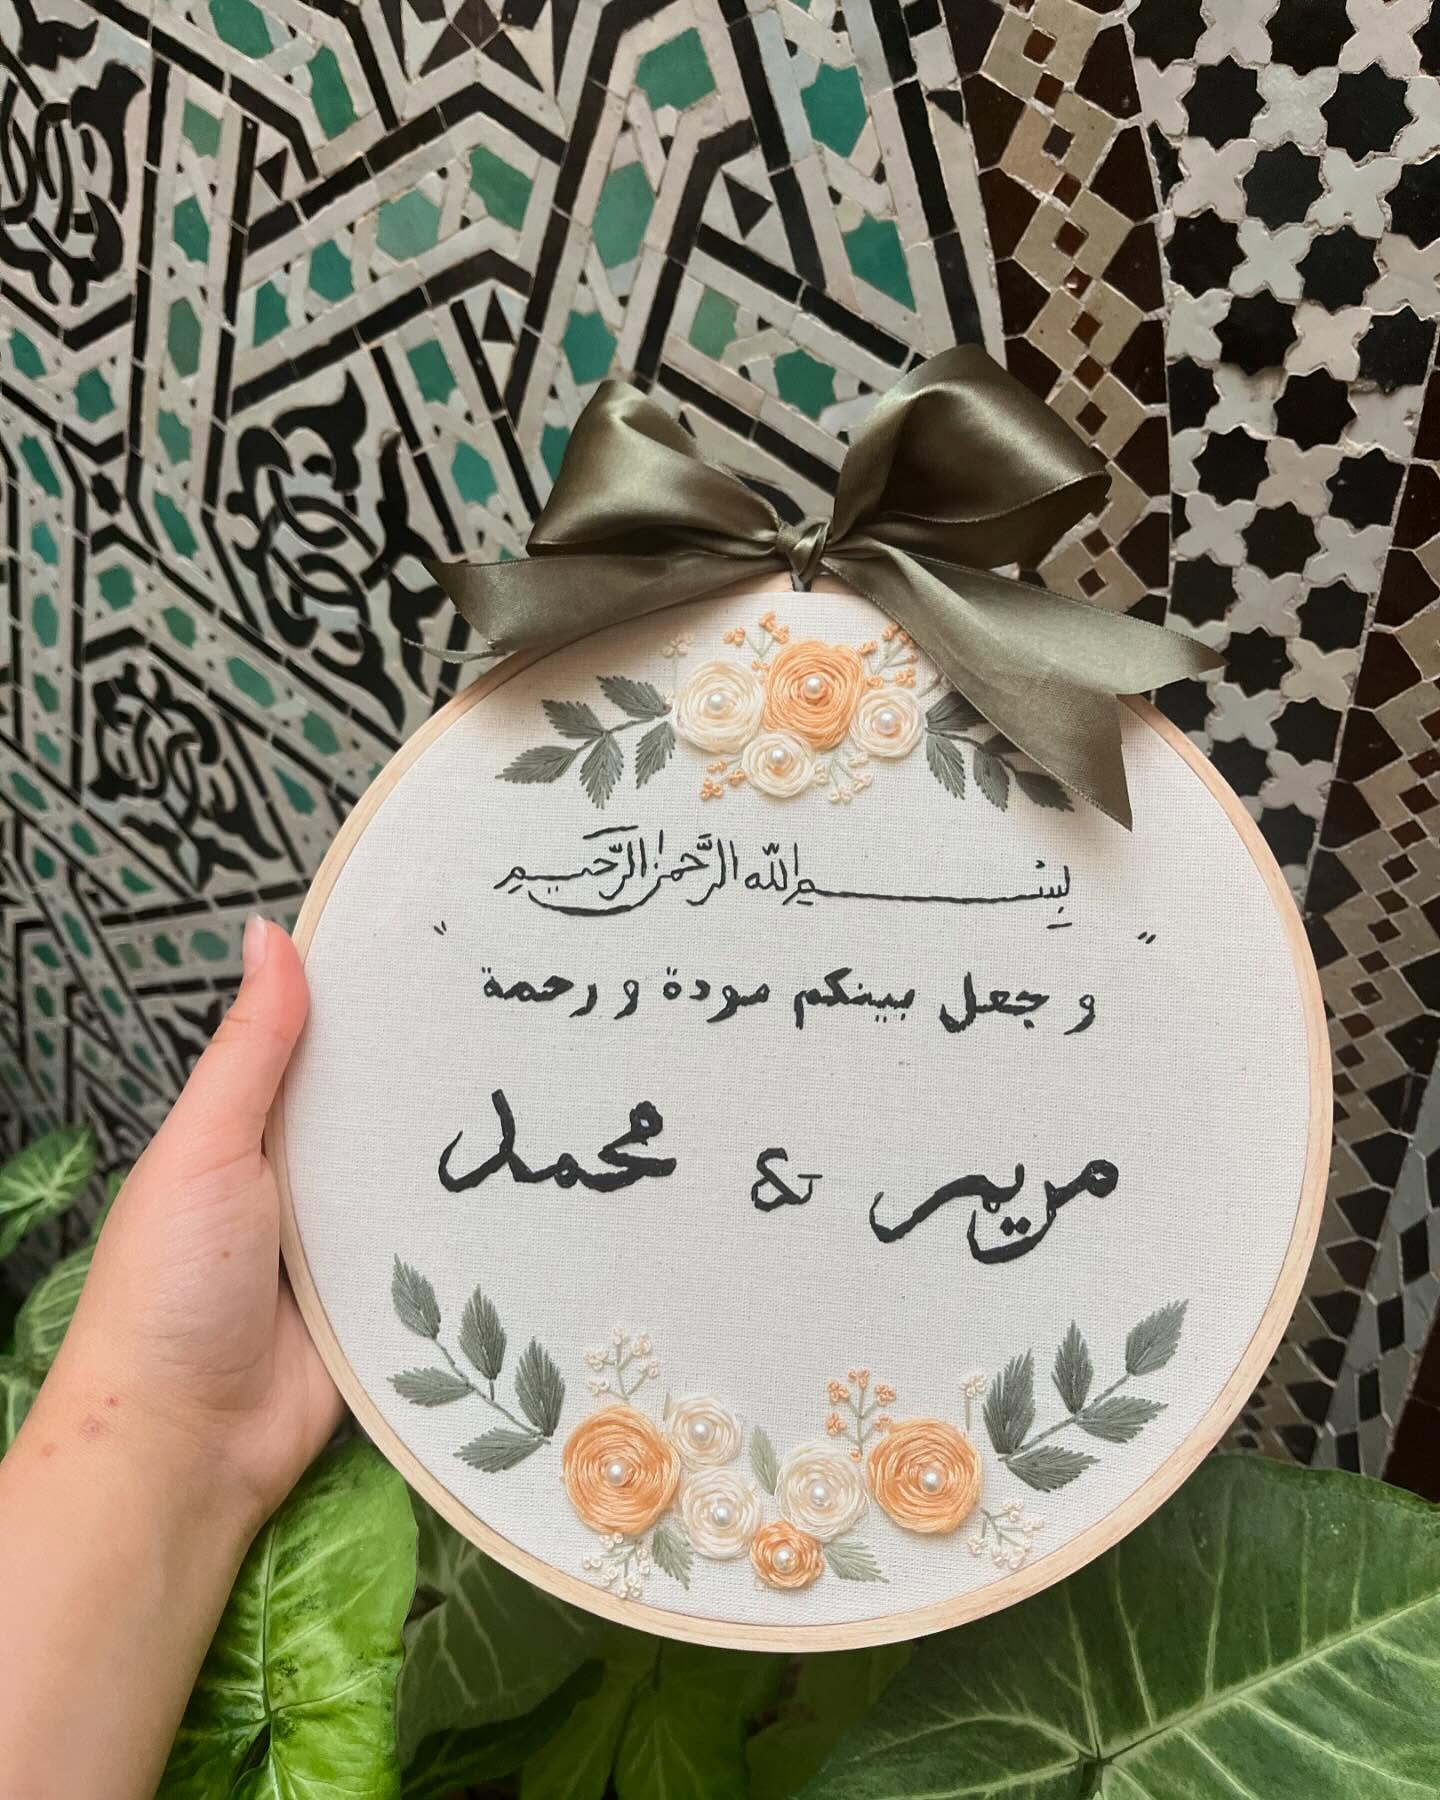 بِسْمِ اللّٰه الرَّحمٰن الرَّحيمِ
" و جعل بينكم مودة و رحمة "
مريم & محمد